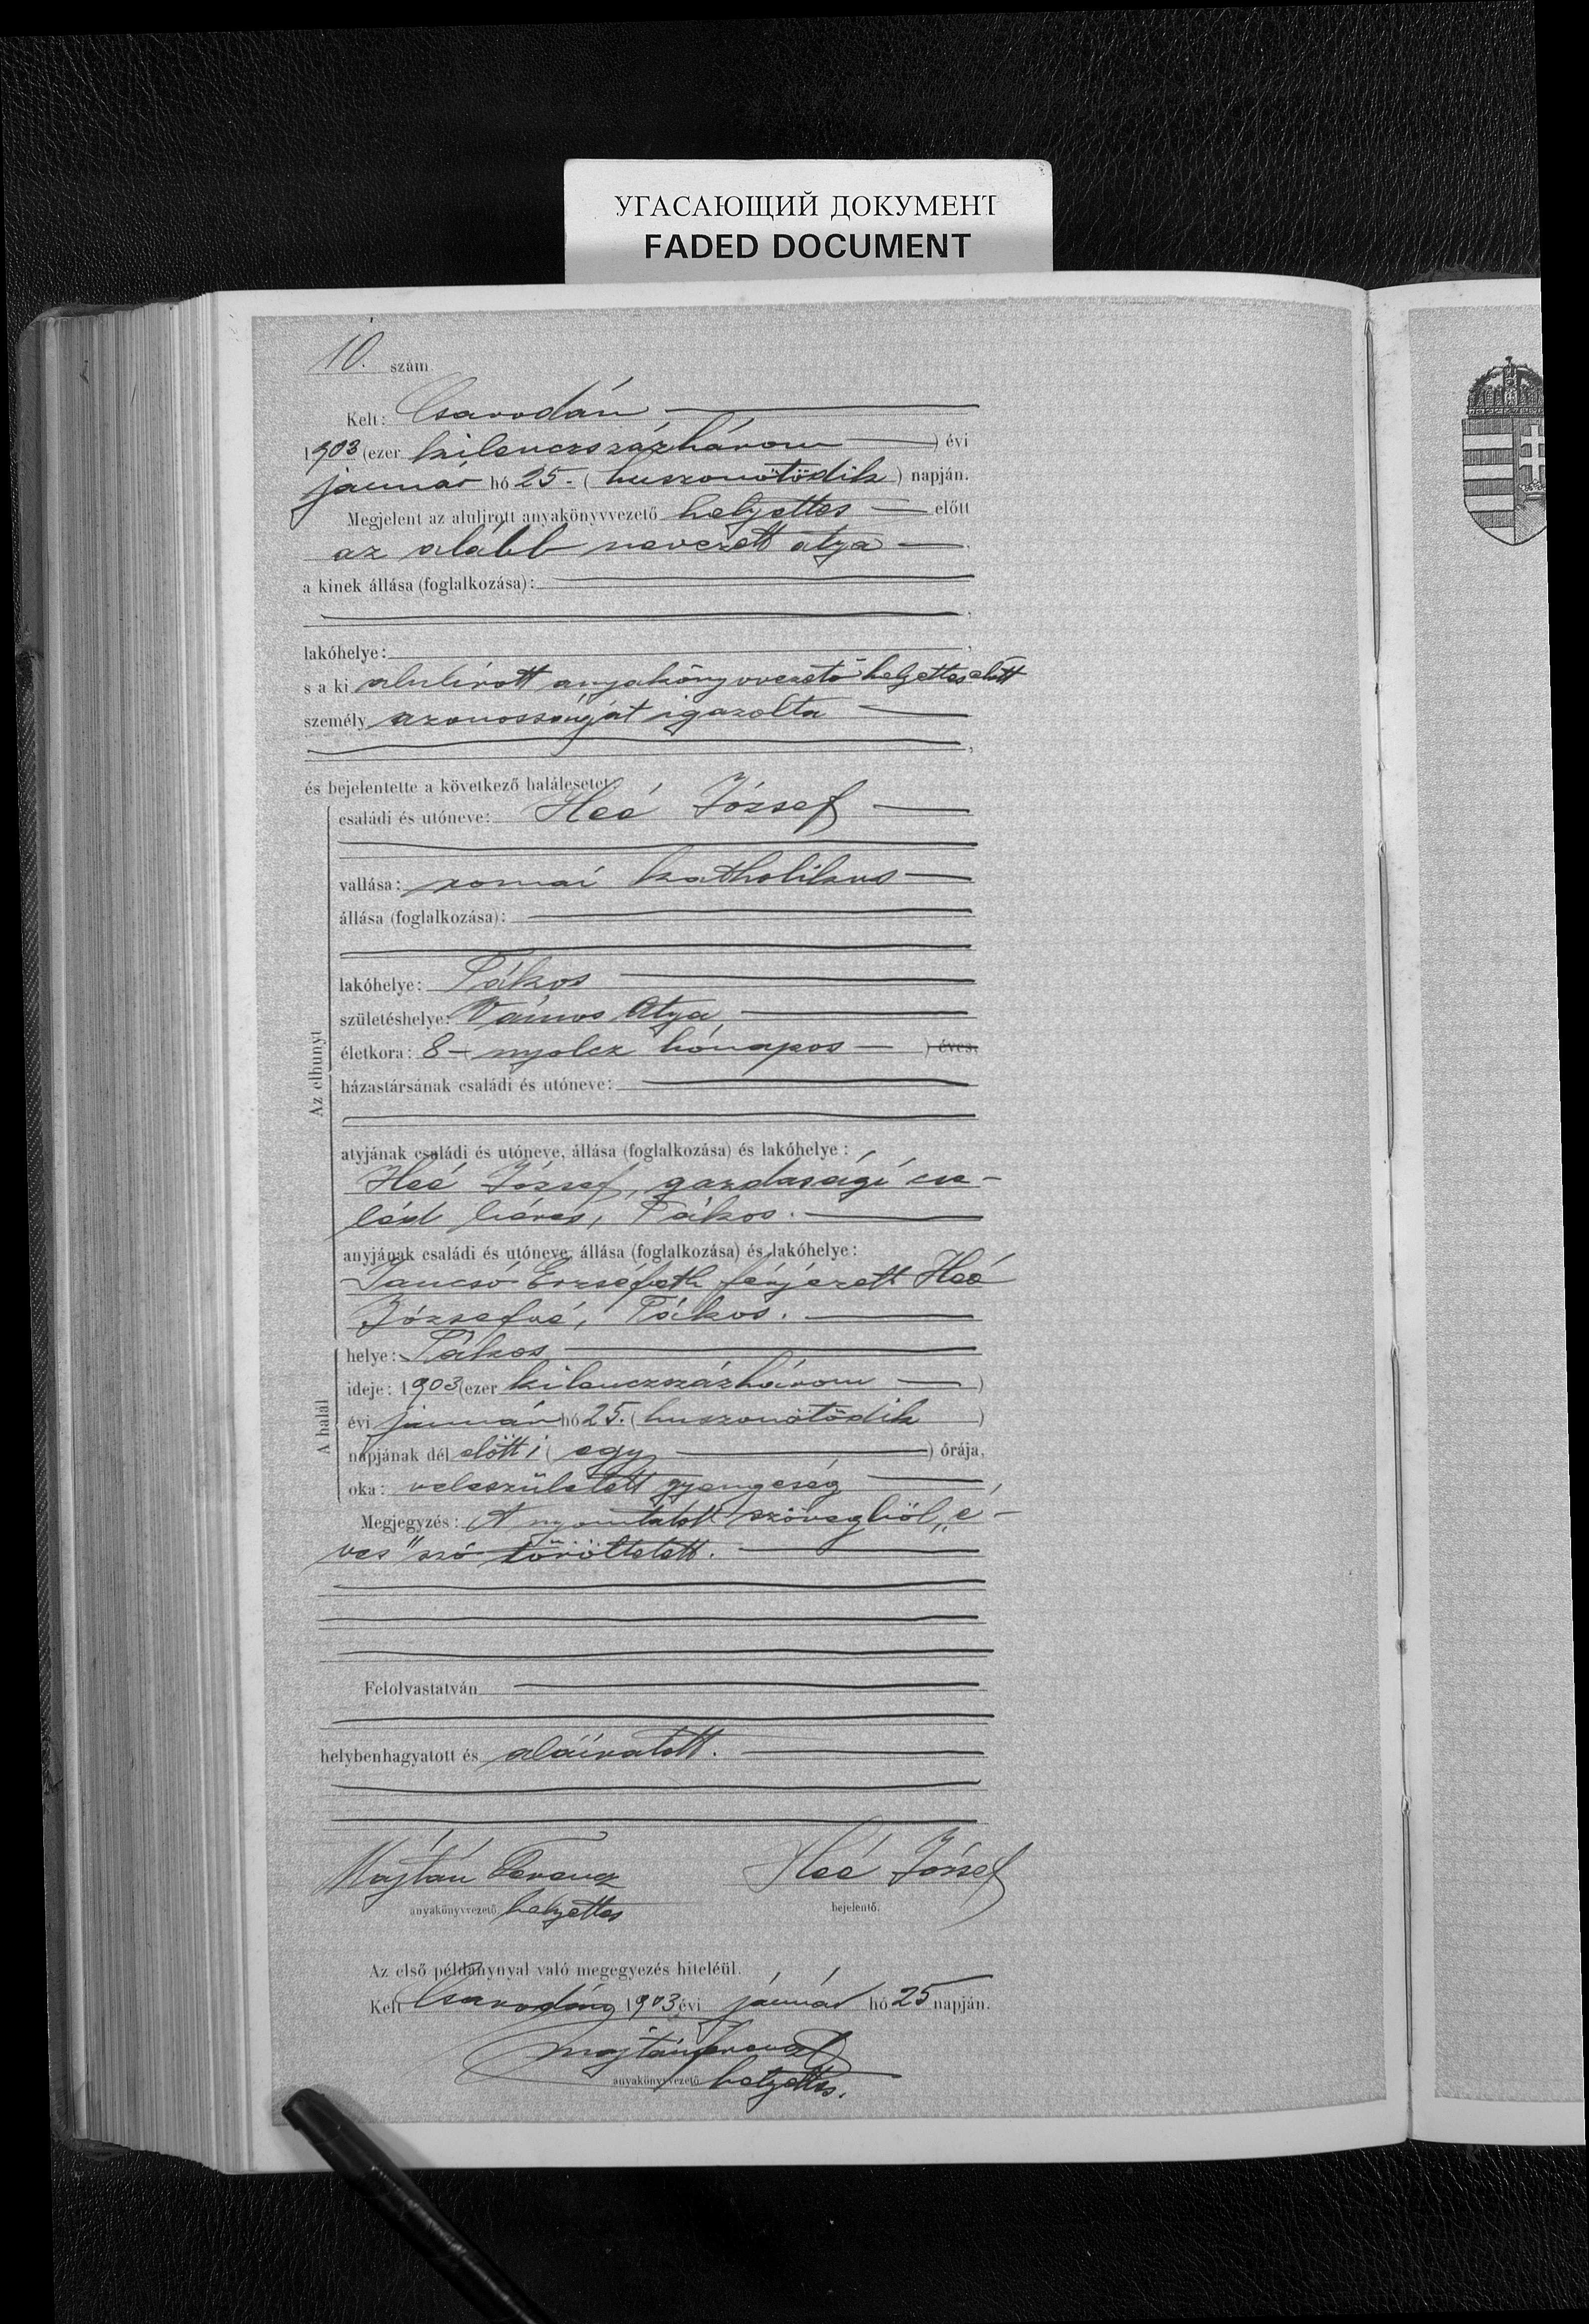 УГАСАЮЩИЙ ДОКУМЕНТ
FADED DOCUMENT
10. szám.
Kelt: Csarodán
1903 (ezer kilenczszázhárom ) évi
január hó 25- ( huszonötödik ) napján.
Megjelent az alulirott anyakönyvvezető helyettes előtt
az alább nevezett atya
a kinek állása (foglalkozása):
lakóhelye:
s a ki alulirott anyakönyvvezető helyettes előtt
személy azonosságát igazolta
és bejelentette a következő halálesetet
Az elhunyt
családi és utóneve: Heé József
vallása: romai katholikus
állása (foglalkozása):
lakóhelye: Tákos
születéshelye: Vámos Atya
életkora: 8- nyolcz hónapos ) éves.
házastársának családi és utóneve:
atyjának családi és utóneve, állása (foglalkozása) és lakóhelye:
Heé József, gazdasági cse-
léd béres, Tákos.
anyjának családi és utóneve, állása (foglalkozása) és lakóhelye:
Jancsó Erzsébeth férjezett Heé
Józsefné, Tákos.
A halál
helye: Tákos
ideje: 1903 (ezer kilenczszázhárom )
évi január hó 25. ( huszonötödik )
napjának dél előtti ( egy ) órája,
oka: veleszületett gyengeség
Megjegyzés: A nyomtatott szövegből „é-
ves" szó töröltetett.
Felolvastatván
helybenhagyatott és aláiratott.
Majtán Ferencz Heé József
anyakönyvvezető helyettes bejelentő.
Az első példánynyal való megegyezés hiteléül.
Kelt Csarodán 1903 évi január hó 25 napján.
Majtán Ferencz
anyakönyvvezető helyettes.